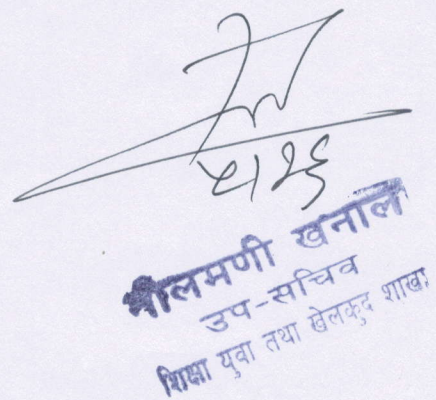 ५।२६
नीलमणी खनाल
उप-सचिव
शिक्षा युवा तथा खेलकुद शाखा